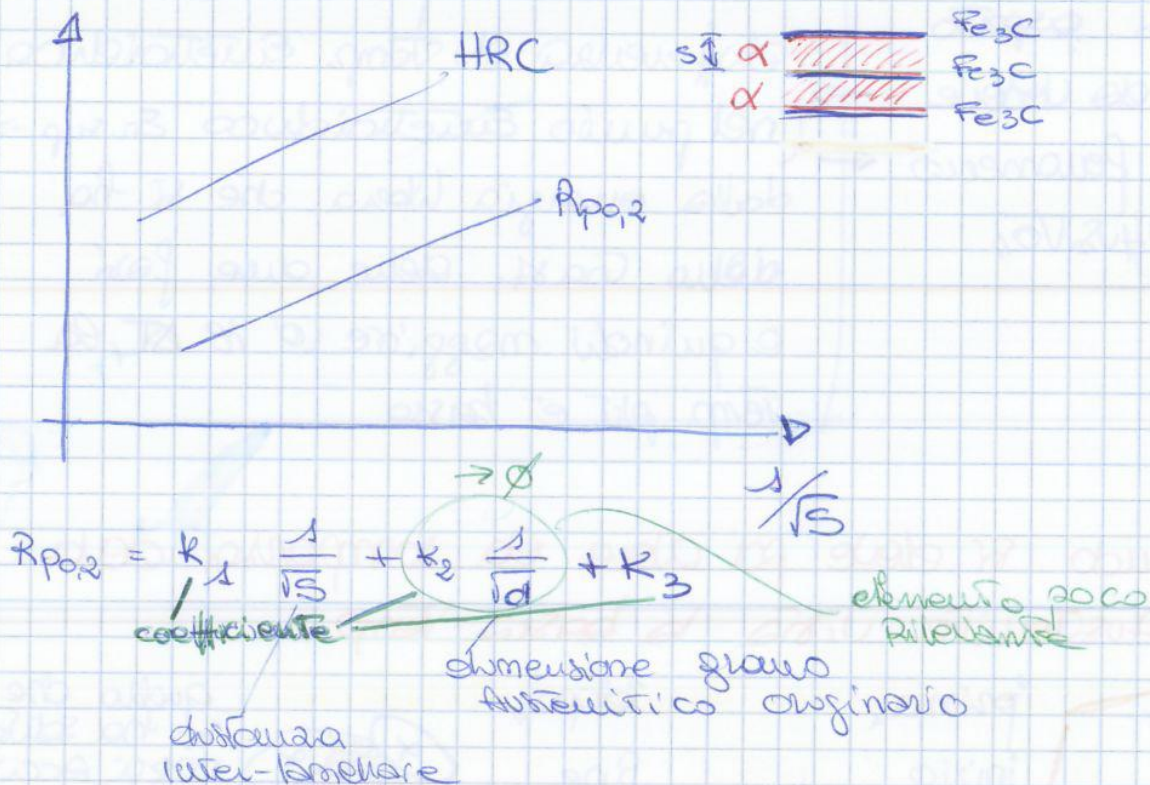 HRC
Fe₃C
S α Fe₃C
α Fe₃C
Rp0,2
1/√S
→ ∅
Rp0,2 = K1 1/√S + K2 1/√d + K3
coefficiente
elemento poco
rilevante
dimensione grano
Austenitico originario
distanza
inter-lamellare